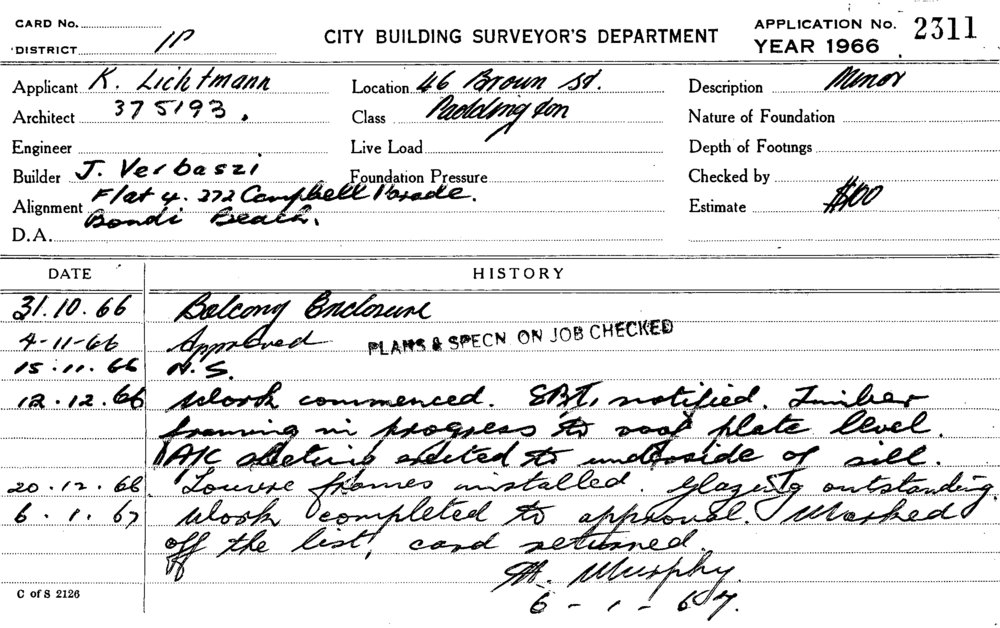 CARD No.
DISTRICT 1P
CITY BUILDING SURVEYOR'S DEPARTMENT
APPLICATION No. 2311
YEAR 1966
Applicant K. Lichtmann
Location 46 Brown St.
Description Minor
Architect 375193.
Class Paddington
Nature of Foundation
Engineer
Live Load
Depth of Footings
Builder J. Verbaszi
Foundation Pressure
Checked by
Alignment Flat 4. 272 Campbell Parade.
Bondi Beach.
Estimate $100
D.A.
DATE HISTORY
31.10.66 Balcony Enclosure
4-11-66 Approved PLANS & SPECN ON JOB CHECKED
15.11.66 N.S.
12.12.66 Work commenced. notified. Timber
framing in progress to roof plate level.
A/C sheeting erected to underside of sill.
20.12.66 Louvre frames installed. Glazing outstanding.
6.1.67 Work completed to approval. Marked
off the list, card returned.
Murphy.
6-1-67.
C of S 2126